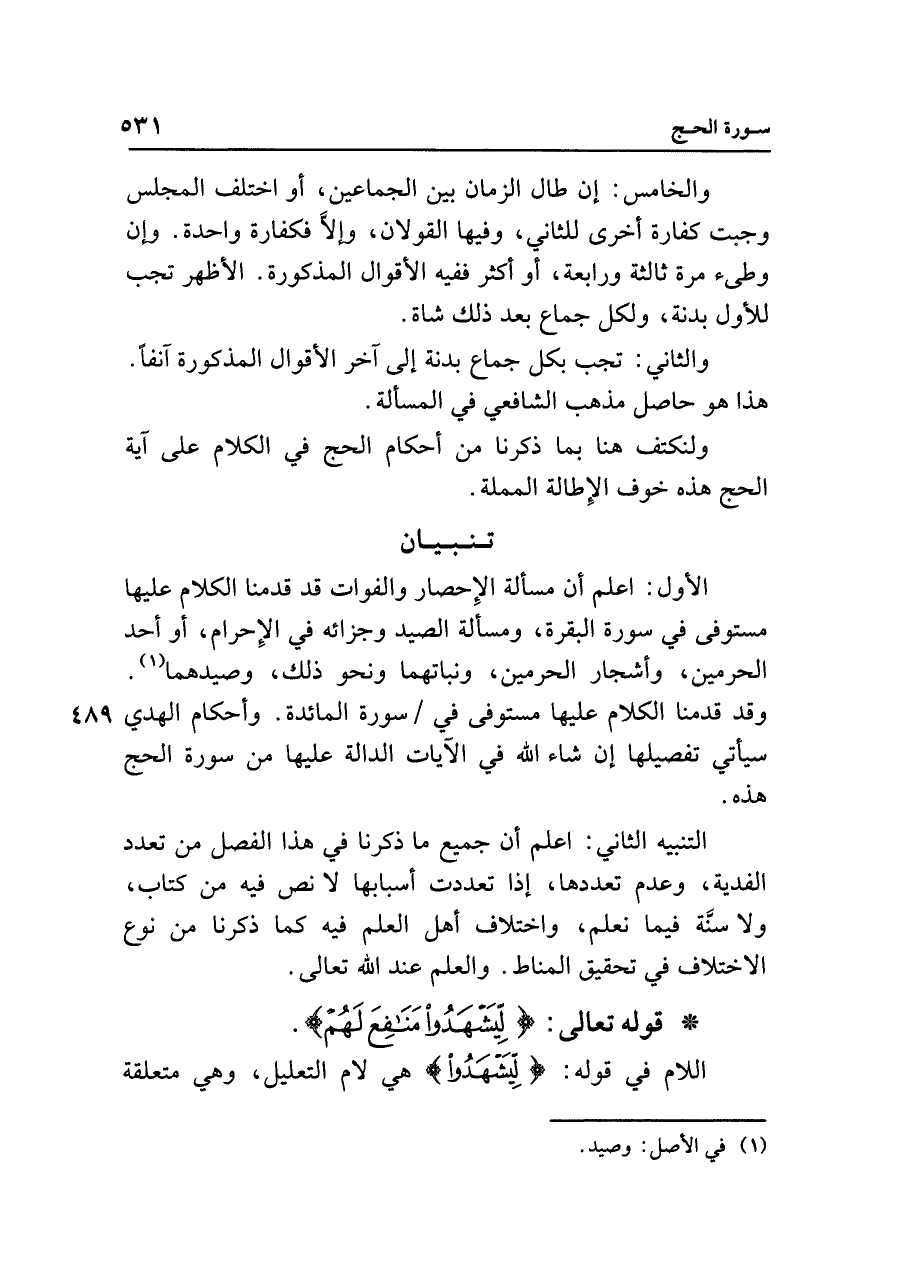 سورة الحج ٥٣١
والخامس: إن طال الزمان بين الجماعين، أو اختلف المجلس
وجبت كفارة أخرى للثاني، وفيها القولان، وإلاَّ فكفارة واحدة. وإن
وطىء مرة ثالثة ورابعة، أو أكثر ففيه الأقوال المذكورة. الأظهر تجب
للأول بدنة، ولكل جماع بعد ذلك شاة.
والثاني: تجب بكل جماع بدنة إلى آخر الأقوال المذكورة آنفاً.
هذا هو حاصل مذهب الشافعي في المسألة.
ولنكتف هنا بما ذكرنا من أحكام الحج في الكلام على آية
الحج هذه خوف الإِطالة المملة.
تنبيان
الأول: اعلم أن مسألة الإِحصار والفوات قد قدمنا الكلام عليها
مستوفى في سورة البقرة، ومسألة الصيد وجزائه في الإِحرام، أو أحد
الحرمين، وأشجار الحرمين، ونباتهما ونحو ذلك، وصيدهما(١).
وقد قدمنا الكلام عليها مستوفى في / سورة المائدة. وأحكام الهدي ٤٨٩
سيأتي تفصيلها إن شاء الله في الآيات الدالة عليها من سورة الحج
هذه.
التنبيه الثاني: اعلم أن جميع ما ذكرنا في هذا الفصل من تعدد
الفدية، وعدم تعددها، إذا تعددت أسبابها لا نص فيه من كتاب،
ولا سنَّة فيما نعلم، واختلاف أهل العلم فيه كما ذكرنا من نوع
الاختلاف في تحقيق المناط. والعلم عند الله تعالى.
* قوله تعالى: ﴿ لِّيَشْهَدُواْ مَنَٰفِعَ لَهُمْ ﴾.
اللام في قوله: ﴿ لِّيَشْهَدُواْ ﴾ هي لام التعليل، وهي متعلقة
(١) في الأصل: وصيد.